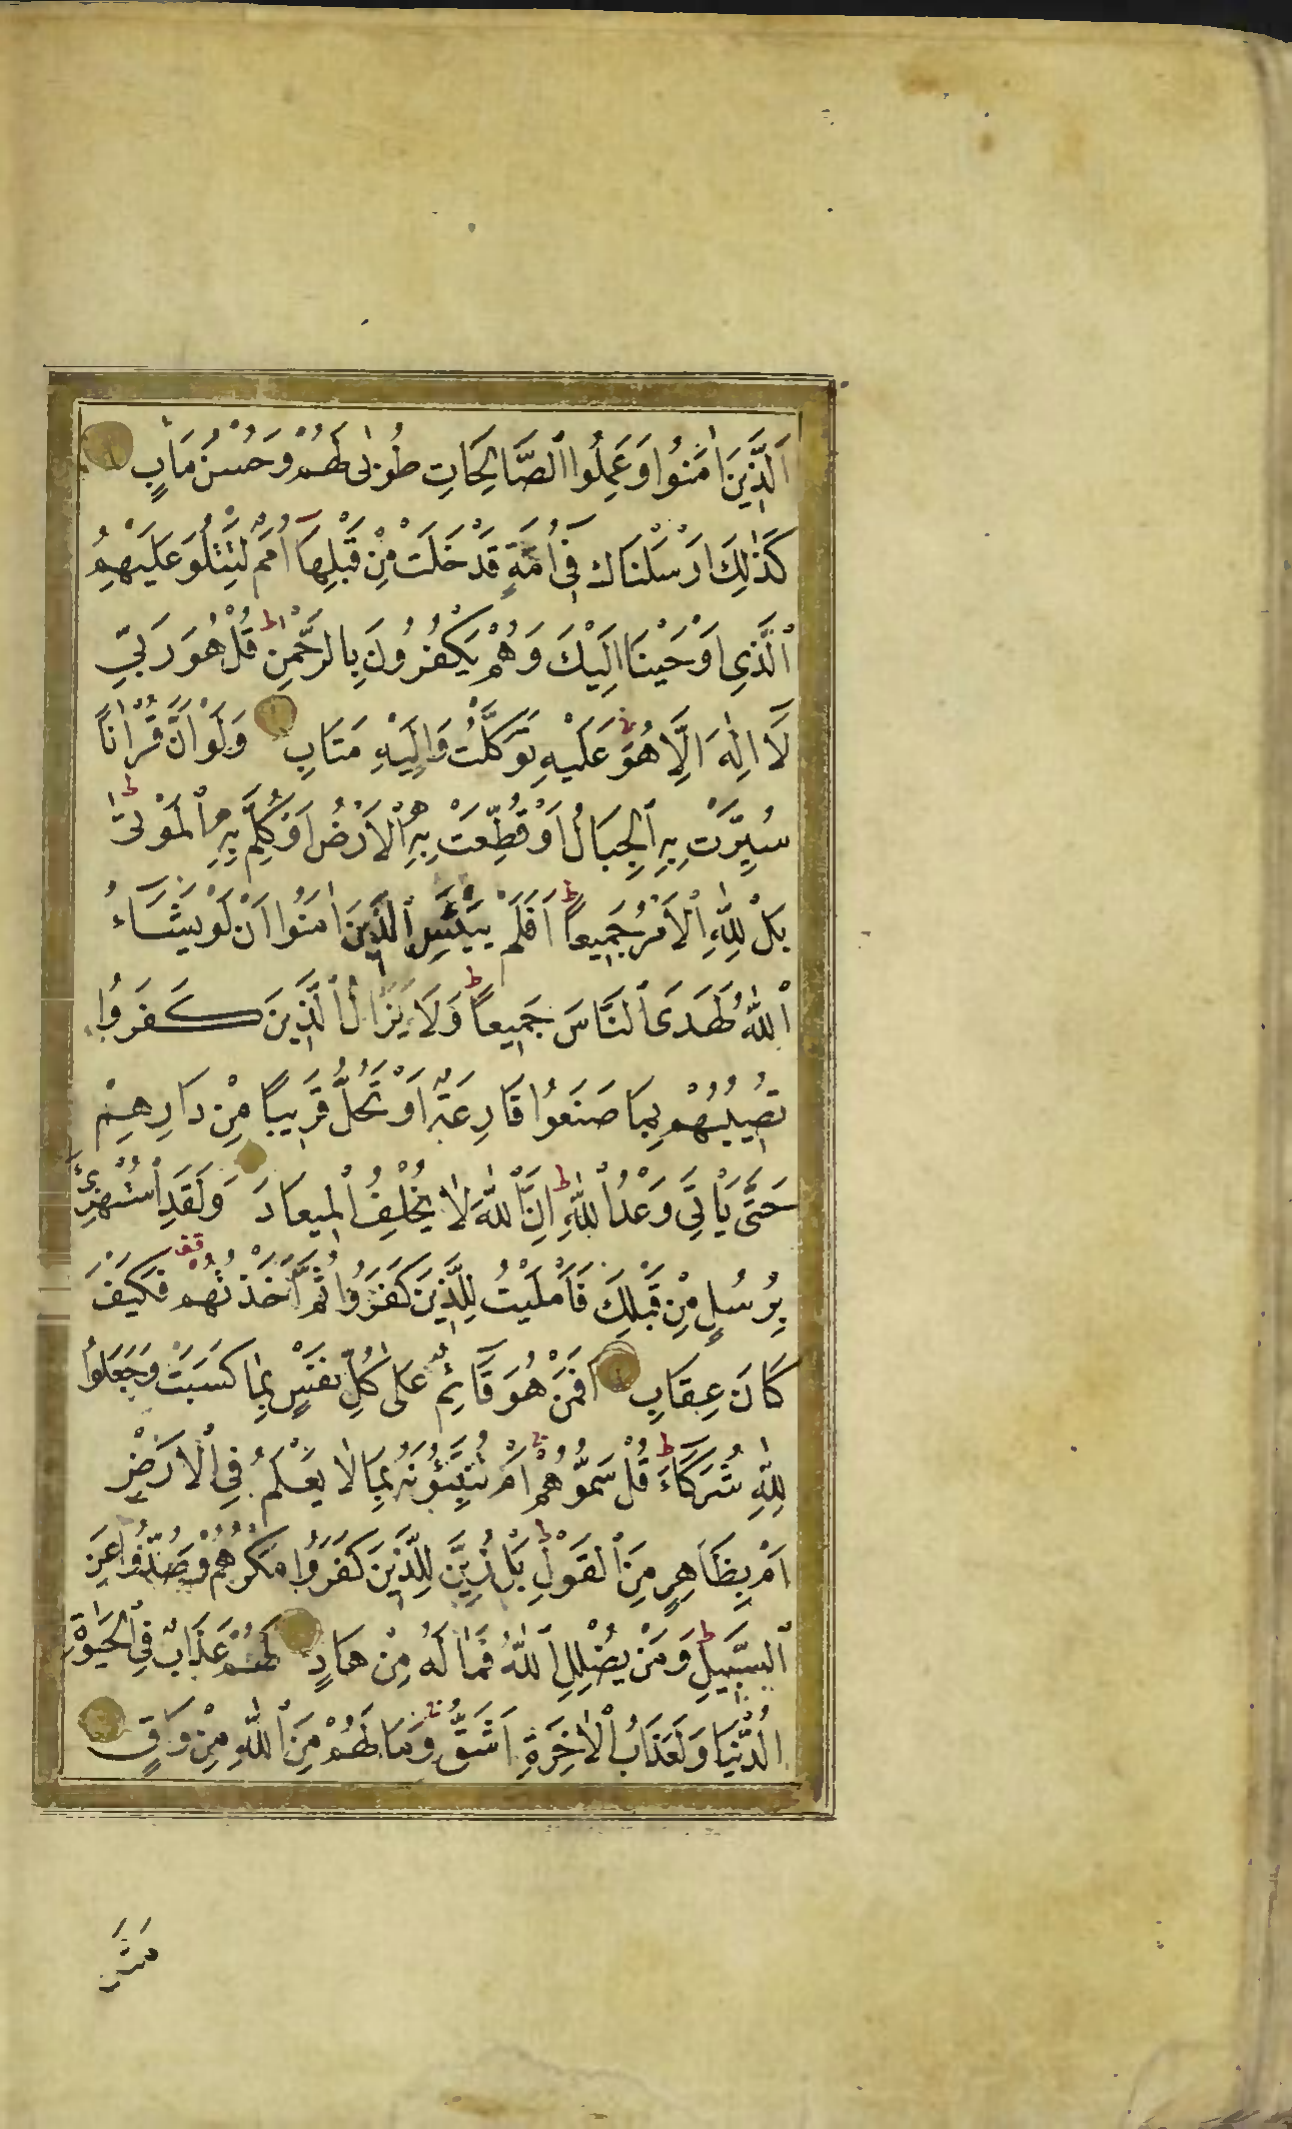 اَلَّذِينَ اٰمَنُوا وَعَمِلُوا ٱلصَّالِحَاتِ طُوبٰى لَهُمْ وَحُسْنُ مَاٰبٍ
كَذٰلِكَ اَرْسَلْنَاكَ فِۤى اُمَّةٍ قَدْ خَلَتْ مِنْ قَبْلِهَاۤ اُمَمٌ لِتَتْلُوَ عَلَيْهِمُ
ٱلَّذِى اَوْحَيْنَا اِلَيْكَ وَهُمْ يَكْفُرُونَ بِالرَّحْمٰنِ ط قُلْ هُوَ رَبِّى
لَاۤ اِلٰهَ اِلَّا هُوَ عَلَيْهِ تَوَكَّلْتُ وَاِلَيْهِ مَتَابِ وَلَوْ اَنَّ قُرْاٰنًا
سُيِّرَتْ بِهِ ٱلْجِبَالُ اَوْ قُطِّعَتْ بِهِ ٱلْاَرْضُ اَوْ كُلِّمَ بِهِ ٱلْمَوْتٰى ط
بَلْ لِلّٰهِ ٱلْاَمْرُ جَمِيعًا ط اَفَلَمْ يَيْئَسِ ٱلَّذِينَ اٰمَنُوا اَنْ لَوْ يَشَاۤءُ
ٱللّٰهُ لَهَدَى ٱلنَّاسَ جَمِيعًا ط وَلَا يَزَالُ ٱلَّذِينَ كَفَرُوا
تُصِيبُهُمْ بِمَا صَنَعُوا قَارِعَةٌ اَوْ تَحُلُّ قَرِيبًا مِنْ دَارِهِمْ
حَتّٰى يَاْتِىَ وَعْدُ ٱللّٰهِ ط اِنَّ ٱللّٰهَ لَا يُخْلِفُ ٱلْمِيعَادَ وَلَقَدِ ٱسْتُهْزِئَ
بِرُسُلٍ مِنْ قَبْلِكَ فَاَمْلَيْتُ لِلَّذِينَ كَفَرُوا ثُمَّ اَخَذْتُهُمْ قف فَكَيْفَ
كَانَ عِقَابِ اَفَمَنْ هُوَ قَاۤئِمٌ عَلٰى كُلِّ نَفْسٍ بِمَا كَسَبَتْ وَجَعَلُوا
لِلّٰهِ شُرَكَاۤءَ ط قُلْ سَمُّوهُمْ اَمْ تُنَبِّئُونَهُ بِمَا لَا يَعْلَمُ فِى ٱلْاَرْضِ
اَمْ بِظَاهِرٍ مِنَ ٱلْقَوْلِ ط بَلْ زُيِّنَ لِلَّذِينَ كَفَرُوا مَكْرُهُمْ وَصُدُّوا عَنِ
ٱلسَّبِيلِ ط وَمَنْ يُضْلِلِ ٱللّٰهُ فَمَا لَهُ مِنْ هَادٍ لَهُمْ عَذَابٌ فِى ٱلْحَيٰوةِ
ٱلدُّنْيَا وَلَعَذَابُ ٱلْاٰخِرَةِ اَشَقُّ وَمَا لَهُمْ مِنَ ٱللّٰهِ مِنْ وَاقٍ
مَثَلُ